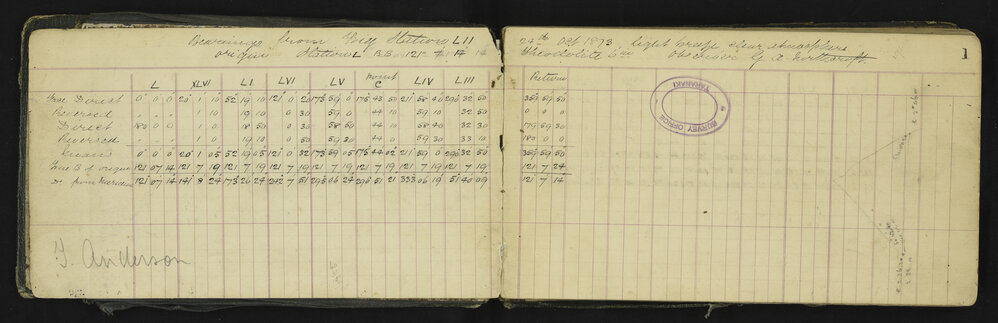 Bearings from Trig Station LII
24th Oct 1873 Light breeze clear atmosphere
1
origin Station L B.B. 121° 7' 14"
Theodolite 6 in Observer G A Northcroft
L XLVI LI LVI LV Point C LIV LIII Return
Face Direct 0 0 0 20 1 10 52 19 10 121 0 20 175 59 0 175 43 50 211 58 40 290 32 50 359 59 50
Reversed " " " 1 10 19 10 0 30 59 0 44 10 59 0 32 50 0 0 0
Direct 180 0 0 1 0 18 50 0 30 58 50 44 10 58 40 32 30 179 59 30
Reversed " " " 1 0 19 10 0 50 59 30 44 10 59 30 33 10 180 0 0
Means 0 0 0 20 1 05 52 19 05 121 0 32 175 59 05 175 44 02 211 59 0 290 32 50 359 59 50
True B of origin 121 07 14 121 7 19 121 7 19 121 7 19 121 7 19 121 7 19 121 7 19 121 7 19 121 7 24
Do from Meridian 121 07 14 141 8 24 173 26 24 242 7 51 296 06 24 296 51 21 333 06 19 51 40 09 121 7 14
SURVEY OFFICE
TARANAKI
T. Anderson